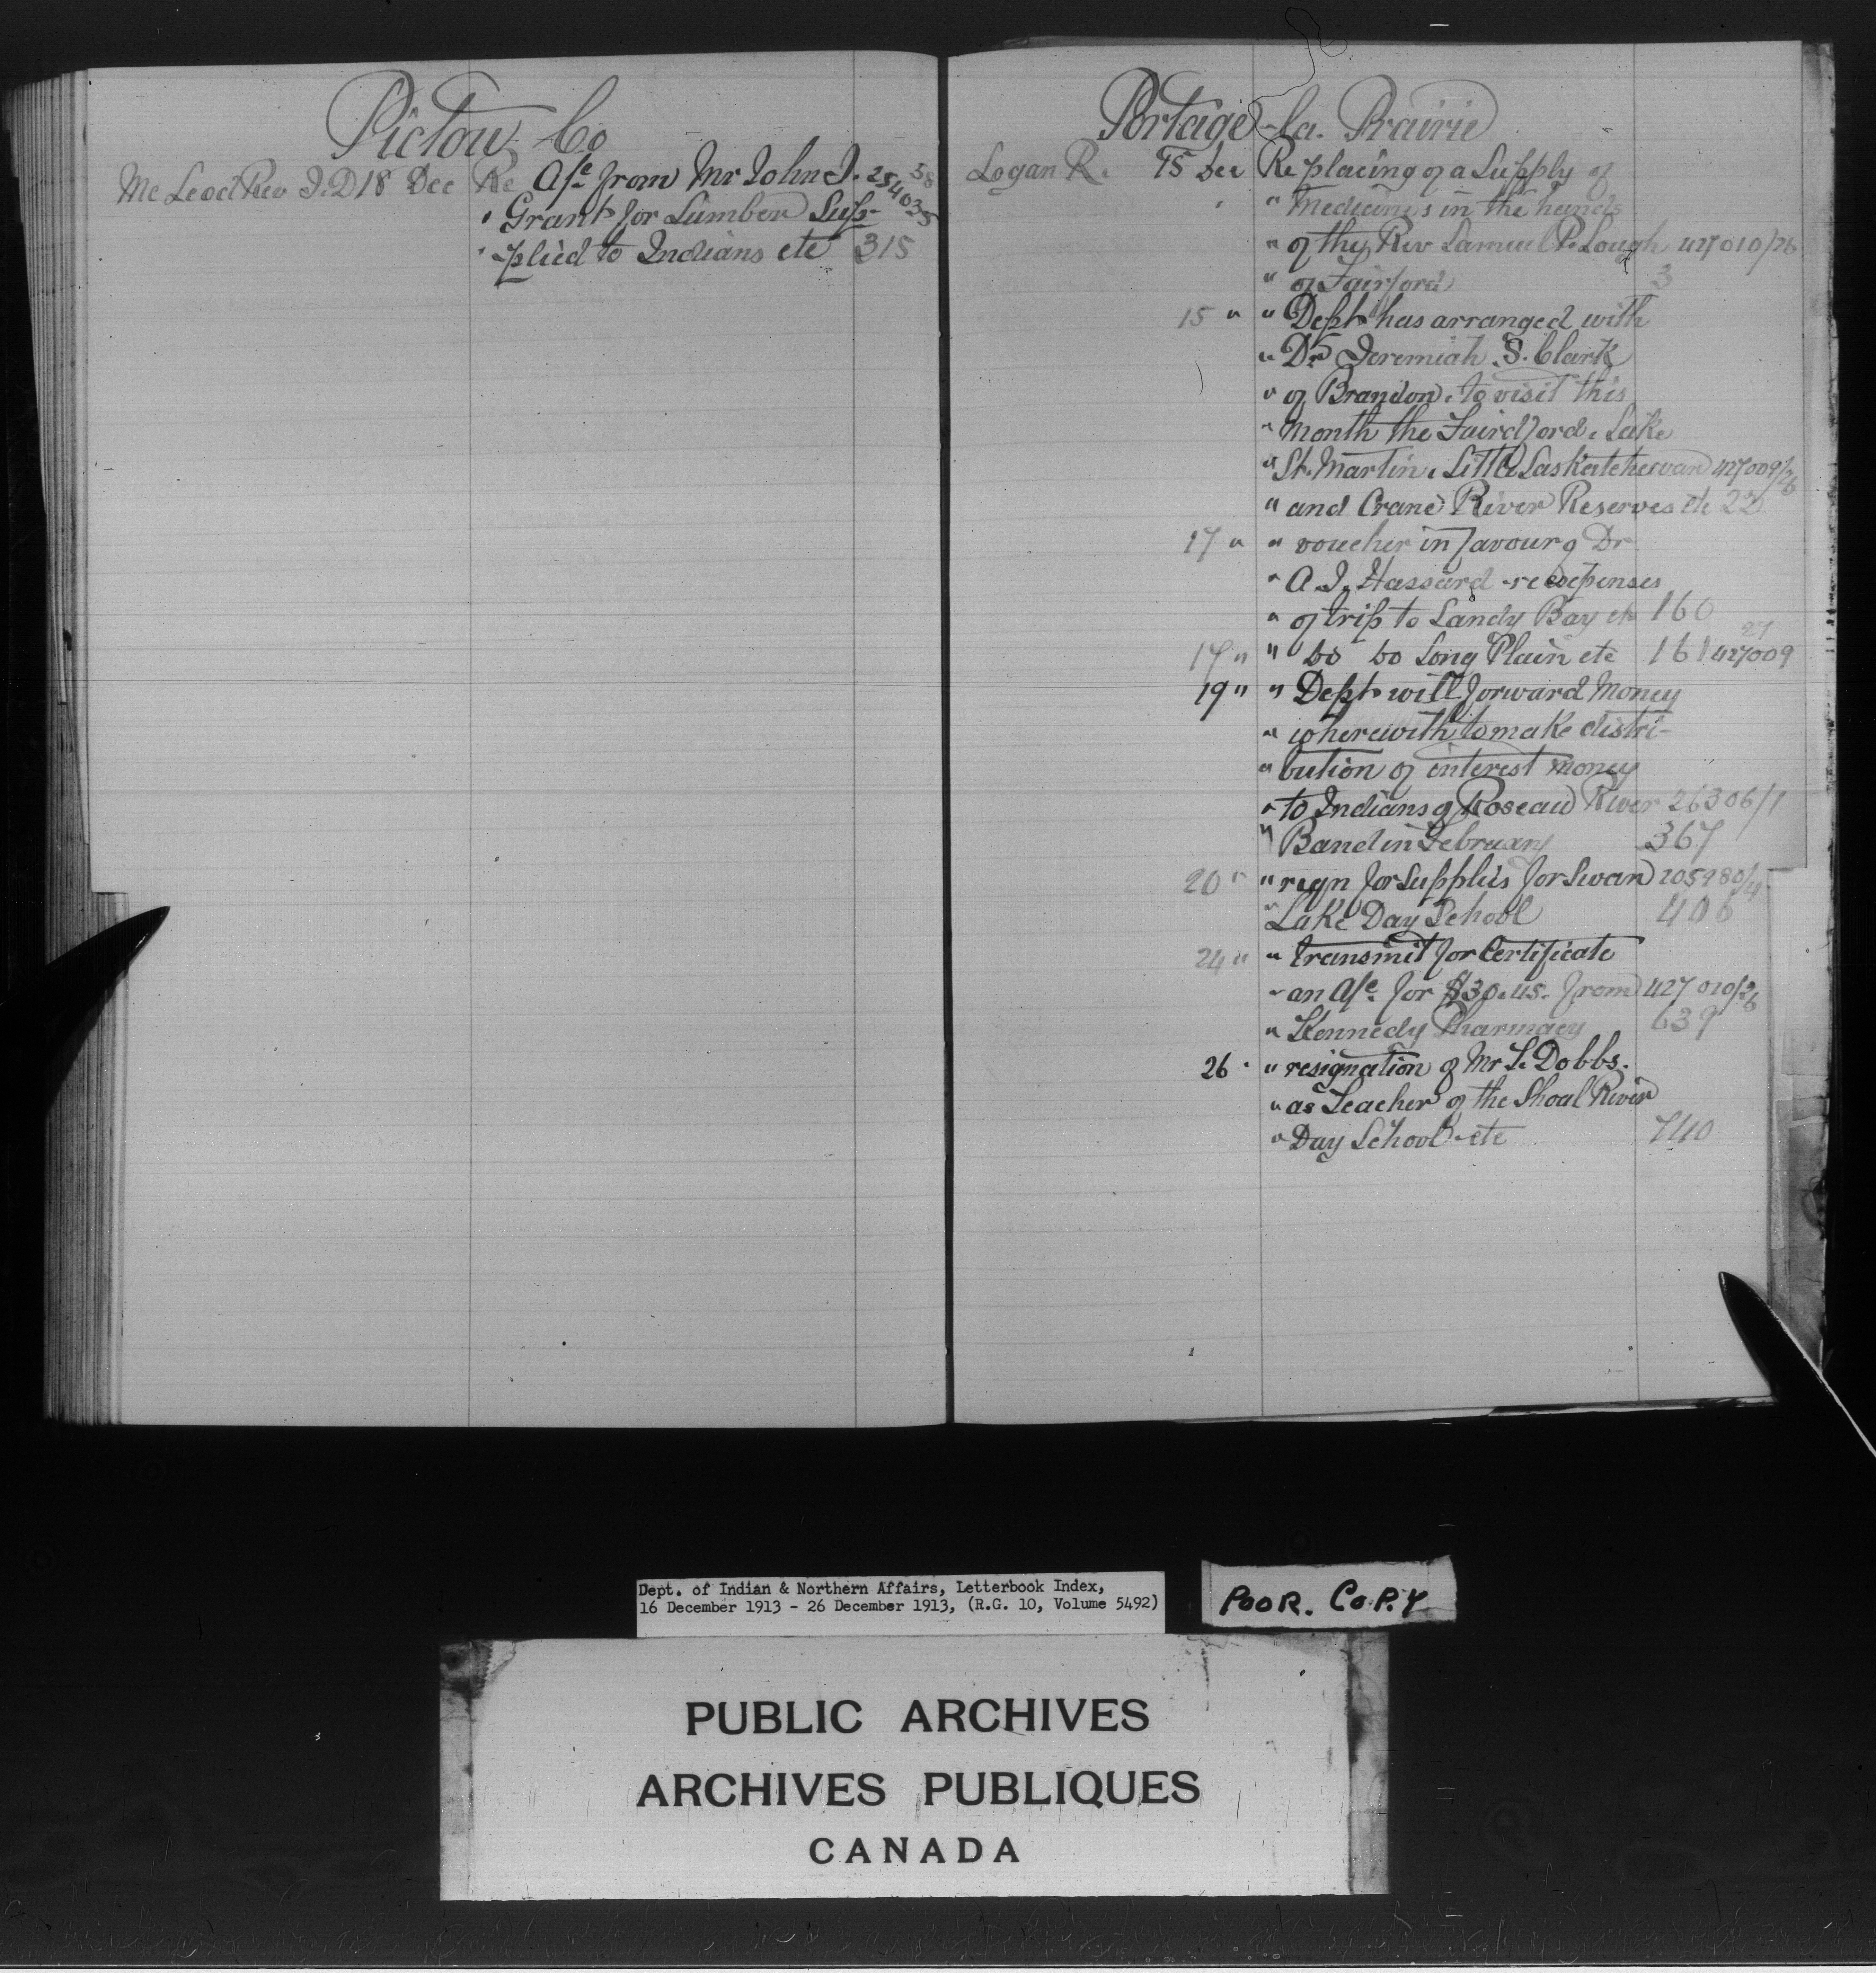 Pictou Co
Mc Leod Rev J. D 18 Dec Re A/c from Mr John J. 254035 38
" Grant for Lumber Sup-
" -plied to Indians etc 315
Portage-la-Prairie
Logan R. 15 Dec Re placing of a Supply of
" Medicines in the hands
" of the Rev Samuel P. Lough 427010/26
" of Fairford 3
15 " " Dept has arranged with
" Dr Jeremiah S. Clark
" of Brandon, to visit this
" month the Fairdford, Lake
" St. Martin, Little Saskatchewan 427009/26
" and Crane River Reserves etc 22
17 " " voucher in favour of Dr
" A. J. Hassard re expenses
" of trip to Sandy Bay etc 160
17 " " Do Do Long Plain etc 161 427009 27
19 " " Dept will forward Money
" wherewith to make distri-
" bution of interest money
" to Indians of Roseau River 26306/1
" Band in February 367
20 " " reqn for supplies for Swan 205980/4
" Lake Day School 406
24 " " transmit for Certificate
" an A/c for $30.45. from 427010/26
" Kennedy Pharmacy 639
26 " " resignation of Mr T. Dobbs.
" as Teacher of the Shoal River
" Day School etc 740
Dept. of Indian & Northern Affairs, Letterbook Index,
16 December 1913 - 26 December 1913, (R.G. 10, Volume 5492)
POOR. COPY
PUBLIC ARCHIVES
ARCHIVES PUBLIQUES
CANADA